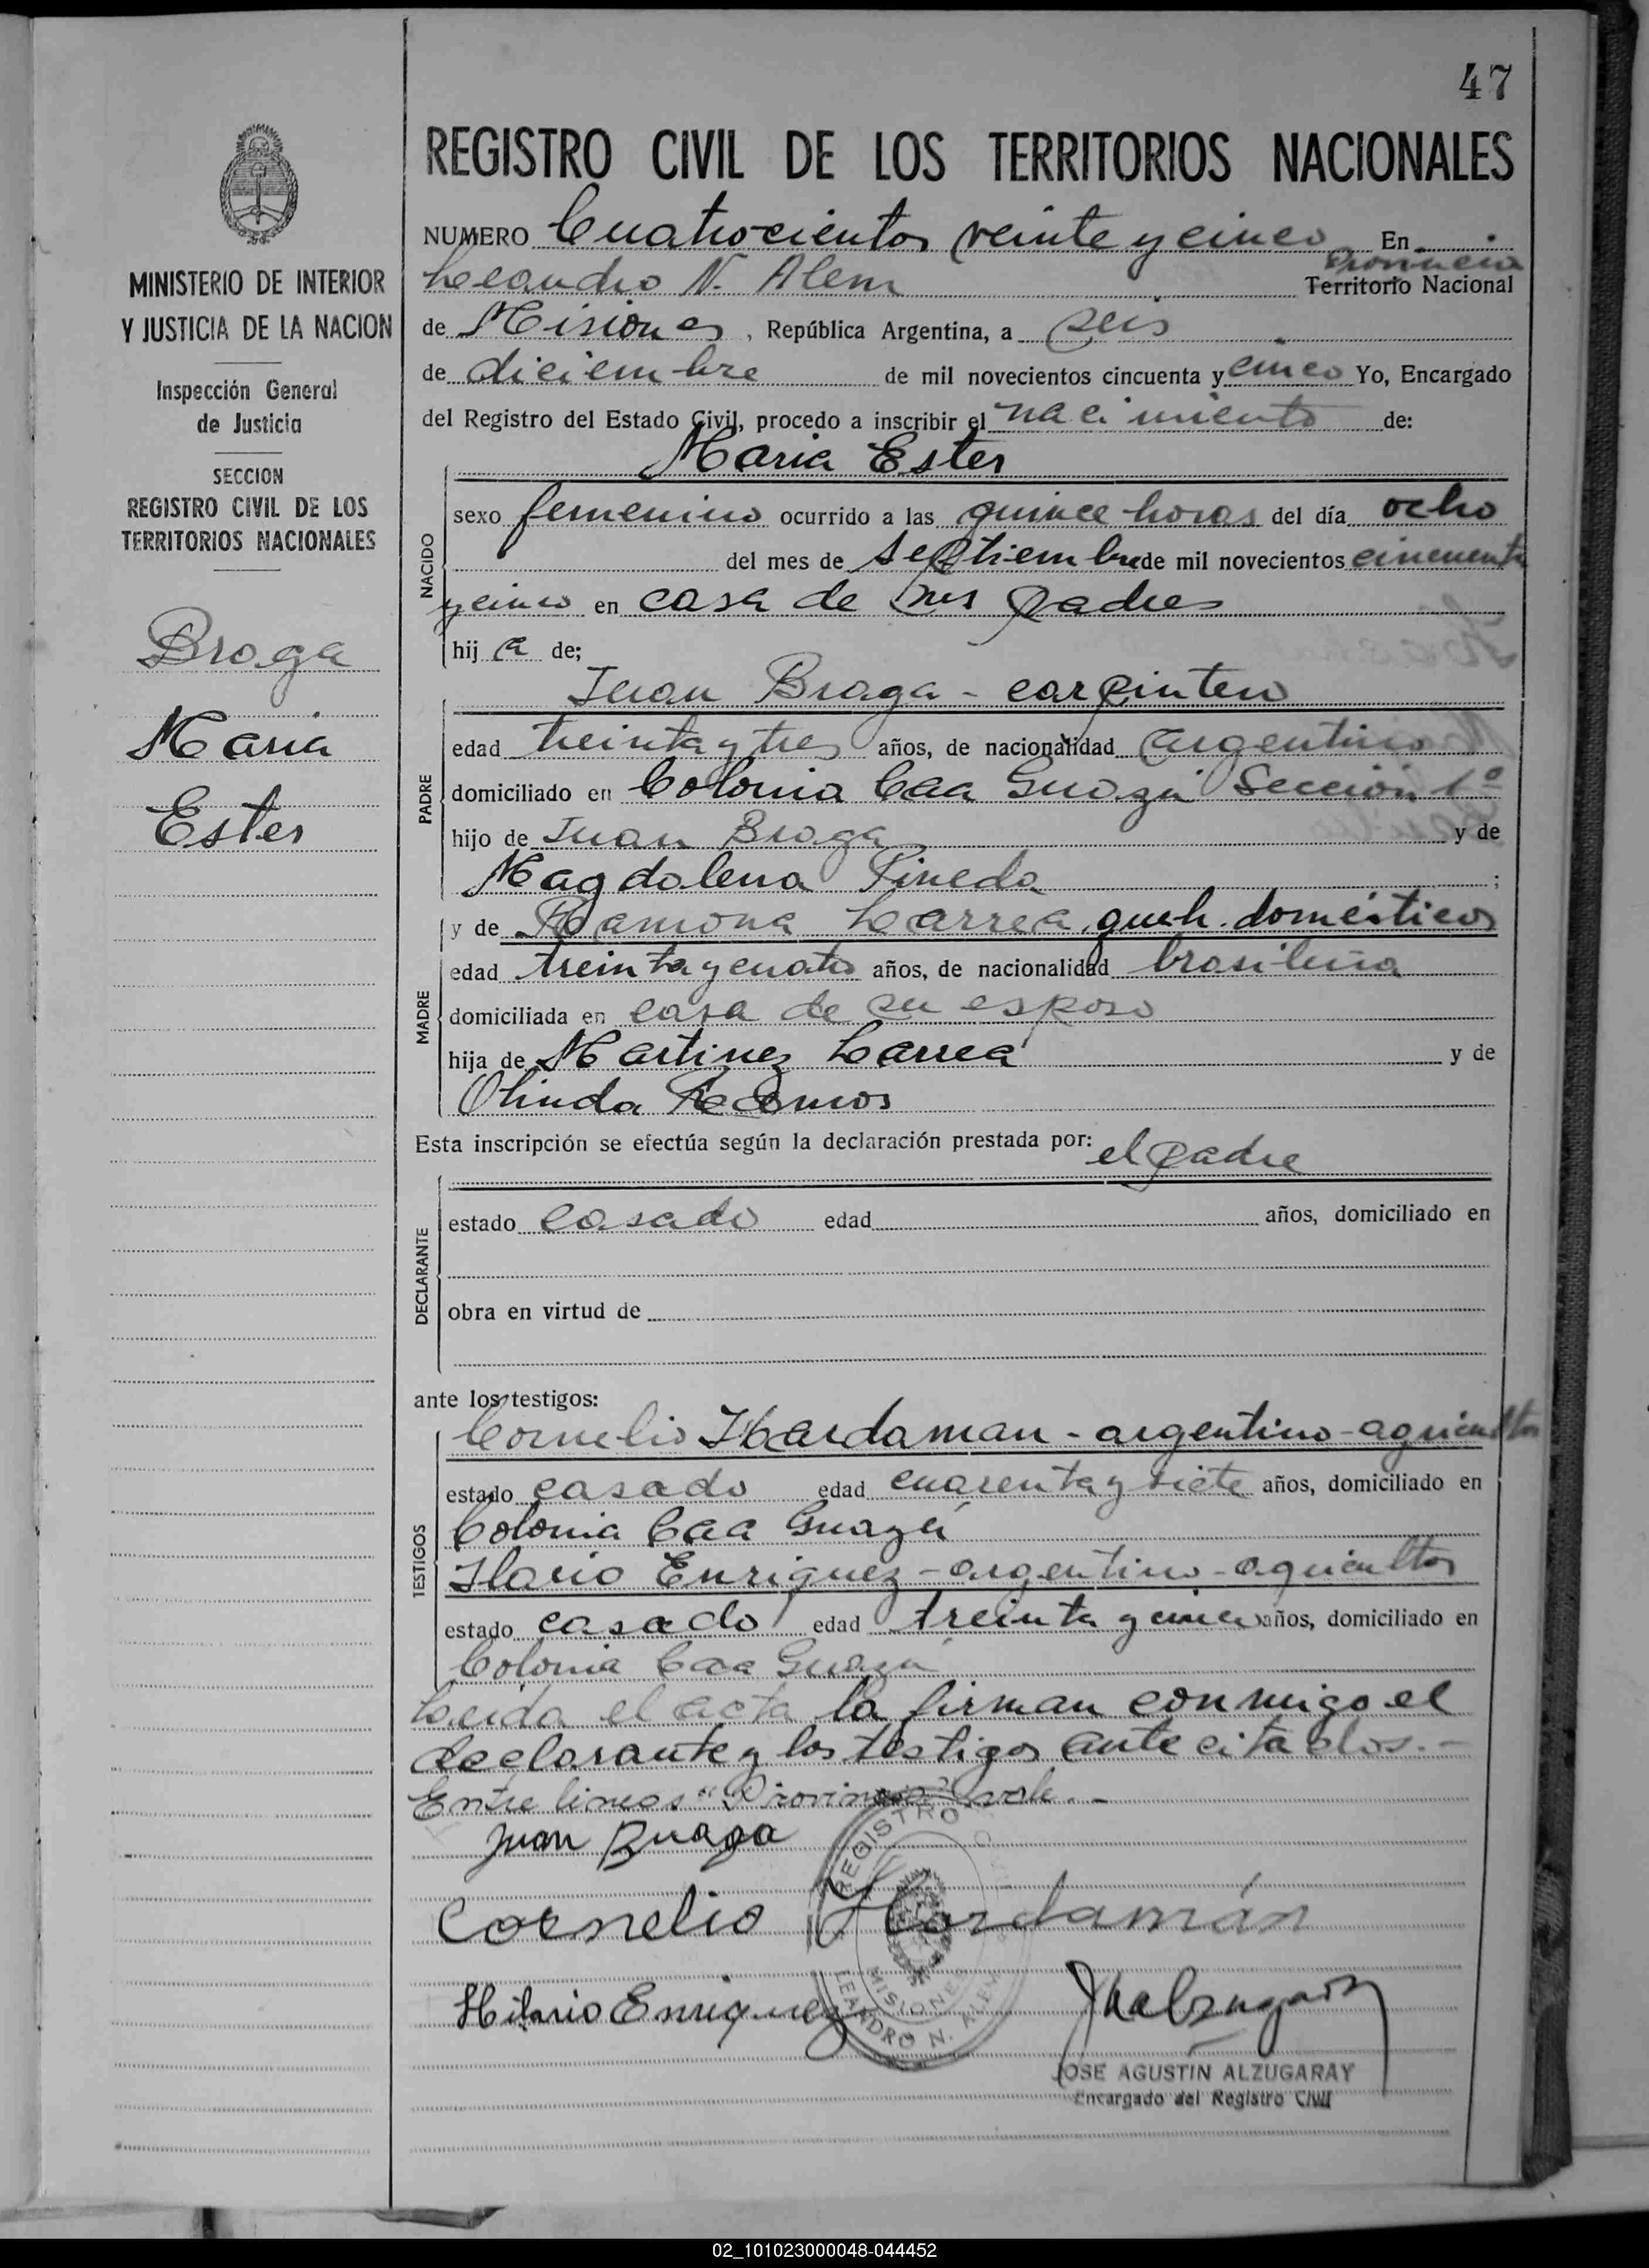 47
REGISTRO CIVIL DE LOS TERRITORIOS NACIONALES
MINISTERIO DE INTERIOR
Y JUSTICIA DE LA NACION
Inspección General
de Justicia
SECCION
REGISTRO CIVIL DE LOS
TERRITORIOS NACIONALES
Braga
Maria
Ester
NUMERO Cuatrocientos veinte y cinco En
Provincia
Leandro N. Alem Territorio Nacional
de Misiones, República Argentina, a seis
de diciembre de mil novecientos cincuenta y cinco Yo, Encargado
del Registro del Estado Civil, procedo a inscribir el nacimiento de:
Maria Ester
NACIDO
sexo femenino ocurrido a las quince horas del día ocho
del mes de septiembre de mil novecientos cincuenta
y cinco en casa de sus padres
hij a de;
Juan Braga - carpintero
PADRE
edad treinta y tres años, de nacionalidad argentino
domiciliado en Colonia Caa Guazú Sección 1ª
hijo de Juan Braga y de
Magdalena Pineda ;
MADRE
y de Ramona Larrea, queh. domésticos
edad treinta y cuatro años, de nacionalidad brasileña
domiciliada en casa de su esposo
hija de Martinez Larrea y de
Olinda Ramos
Esta inscripción se efectúa según la declaración prestada por: el padre
DECLARANTE
estado casado edad años, domiciliado en
obra en virtud de
ante los testigos:
TESTIGOS
Cornelio Hardaman - argentino - agricultor
estado casado edad cuarenta y siete años, domiciliado en
Colonia Caa Guazú
Ilario Enriquez - argentino - agricultor
estado casado edad treinta y cinco años, domiciliado en
Colonia Caa Guazú
Leida el acta la firman conmigo el
declarante y los testigos ante citados.-
Entre lineas "Provincia" vale.-
Juan Braga
Cornelio Hardamán
Hilario Enriquez
REGISTRO
MISIONES
LEANDRO N. ALEM
JOSE AGUSTIN ALZUGARAY
Encargado del Registro Civil
02_101023000048-044452